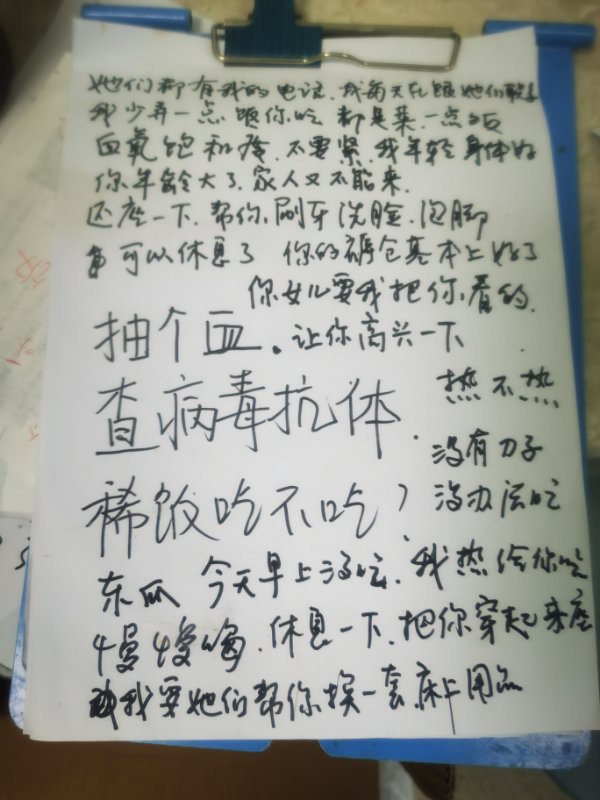 她们都有我的电话.我每天在跟她们联系
我少弄一点饭你吃 都是菜.一点饭
血氧饱和度.不要紧.我年轻身体好
你年龄大了.家人又不能来.
还座一下.帮你刷牙洗脸.泡脚
可以休息了 你的褥仓基本上好了
你女儿要我把你看的.
抽个血.让你高兴一下
查病毒抗体 热不热
没有刀子
稀饭吃不吃? 没办法吃
东瓜 今天早上没吃.我热给你吃
慢慢喝.休息一下.把你穿起来座
我要她们帮你换一套床上用品